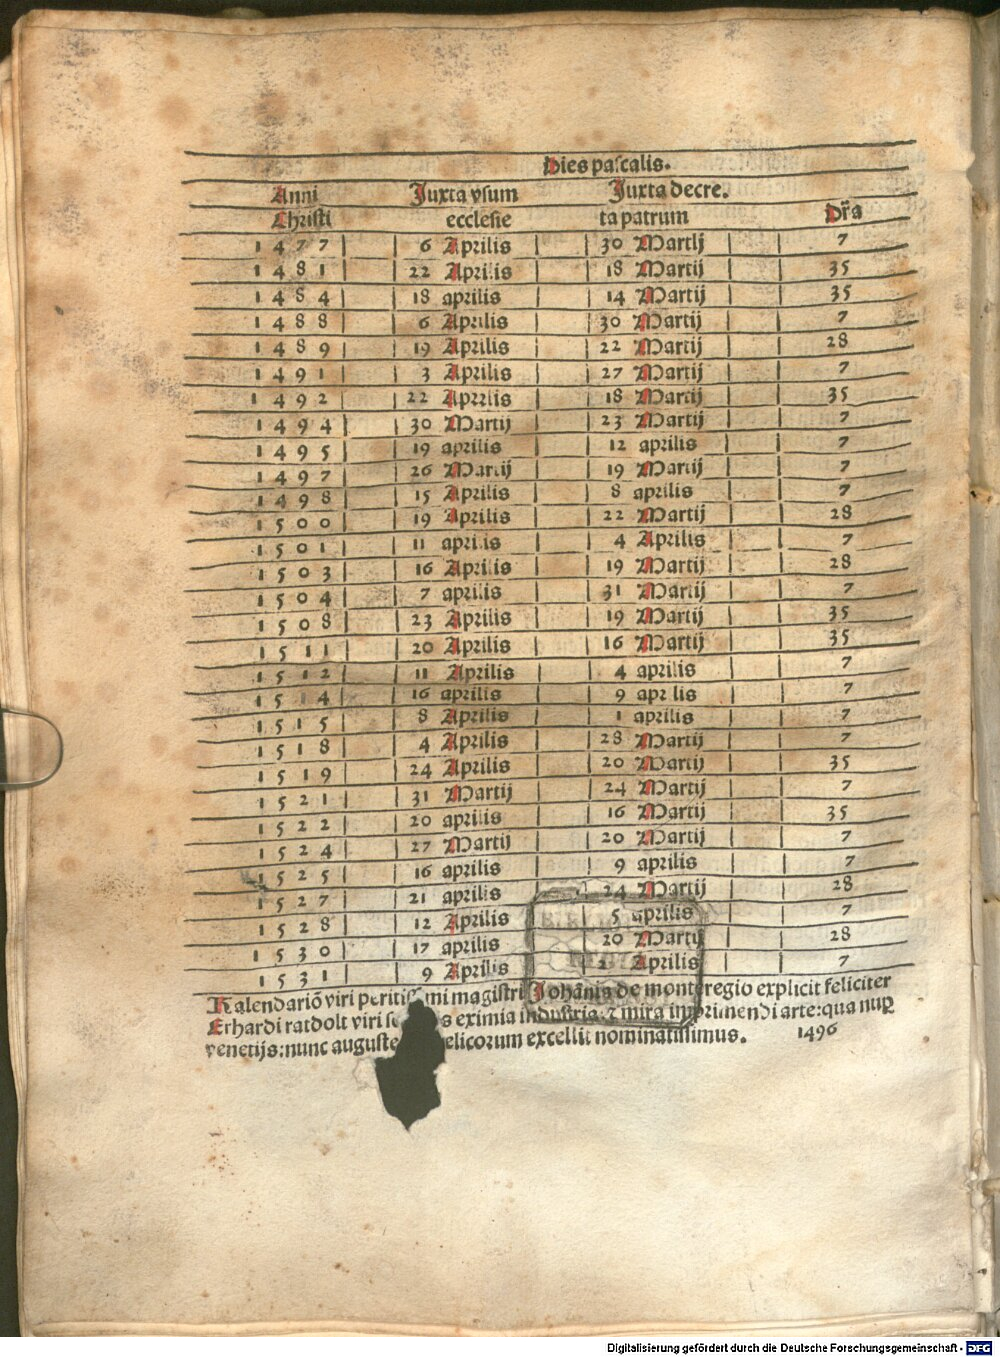 Dies pascalis.
Anni Juxta vsum Juxta decre.
Christi ecclesie ta patrum Dr̃a
1477 6 Aprilis 30 Martij 7
1481 22 Aprilis 18 Martij 35
1484 18 aprilis 14 Martij 35
1488 6 Aprilis 30 Martij 7
1489 19 Aprilis 22 Martij 28
1491 3 Aprilis 27 Martij 7
1492 22 Aprilis 18 Martij 35
1494 30 Martij 23 Martij 7
1495 19 aprilis 12 aprilis 7
1497 26 Martij 19 Martij 7
1498 15 Aprilis 8 aprilis 7
1500 19 Aprilis 22 Martij 28
1501 11 aprilis 4 Aprilis 7
1503 16 Aprilis 19 Martij 28
1504 7 aprilis 31 Martij 7
1508 23 Aprilis 19 Martij 35
1511 20 Aprilis 16 Martij 35
1512 11 Aprilis 4 aprilis 7
1514 16 aprilis 9 aprilis 7
1515 8 Aprilis 1 aprilis 7
1518 4 Aprilis 28 Martij 7
1519 24 Aprilis 20 Martij 35
1521 31 Martij 24 Martij 7
1522 20 aprilis 16 Martij 35
1524 27 Martij 20 Martij 7
1525 16 aprilis 9 aprilis 7
1527 21 aprilis 24 Martij 28
1528 12 Aprilis 5 aprilis 7
1530 17 aprilis 20 Martij 28
1531 9 Aprilis Aprilis 7
Kalendariõ viri peritissimi magistri Johãnis de monteregio explicit feliciter
Erhardi ratdolt viri eximia industria: ⁊ mira imprimendi arte: qua nuꝑ
venetijs: nunc auguste excellit nominatissimus. 1496
Digitalisierung gefördert durch die Deutsche Forschungsgemeinschaft - DFG